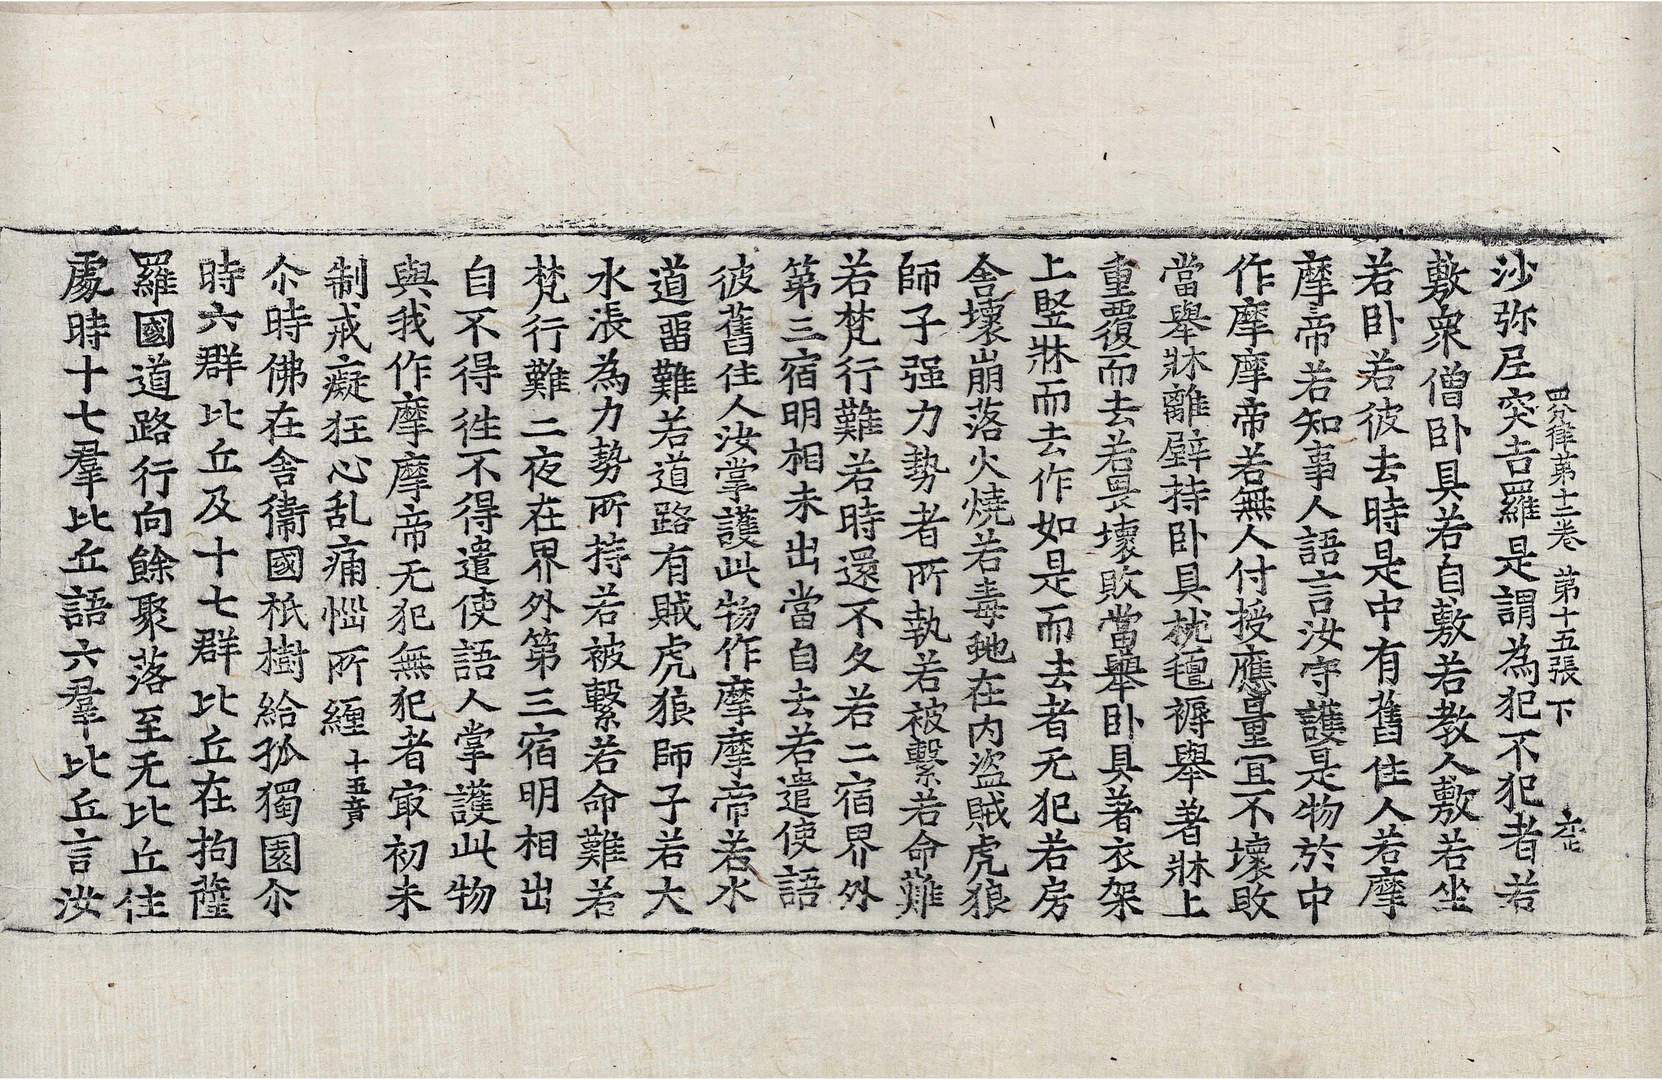 四分律第十二卷 第十五張 下
沙弥尼突吉羅是謂為犯不犯者若
敷衆僧卧具若自敷若教人敷若坐
若卧若彼去時是中有舊住人若摩
摩帝若知事人語言汝守護是物於中
作摩摩帝若無人付授應量宜不壞敗
當舉牀離壁持卧具枕氊褥舉著牀上
重覆而去若畏壞敗當舉卧具著衣架
上竪牀而去作如是而去者无犯若房
舍壞崩落火燒若毒虵在內盜賊虎狼
師子强力勢者所執若被繫若命難
若梵行難若時還不久若二宿界外
第三宿明相未出當自去若遣使語
彼舊住人汝掌護此物作摩摩帝若水
道畱難若道路有賊虎狼師子若大
水漲為力勢所持若被繫若命難若
梵行難二夜在界外第三宿明相出
自不得往不得遣使語人掌護此物
與我作摩摩帝无犯無犯者㝡初未
制戒癡狂心乱痛惱所纏 十五竟
尒時佛在舍衞國祇樹給孤獨園尒
時六群比丘及十七群比丘在拘薩
羅國道路行向餘聚落至无比丘住
處時十七羣比丘語六羣比丘言汝